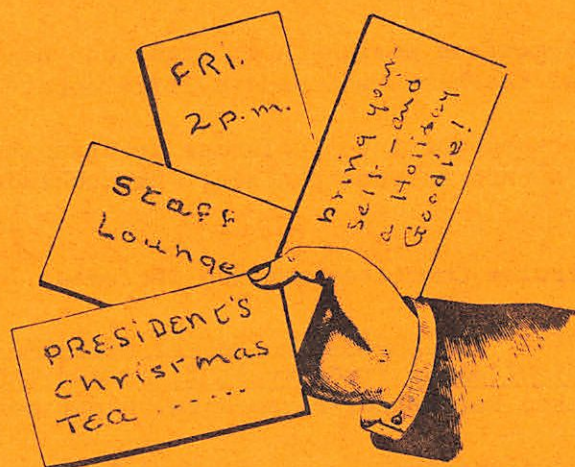 FRI.
2 p.m.
Staff
Lounge
PRESIDENT'S
Christmas
Tea ......
bring your-
self - and
a Holiday
Goodie!